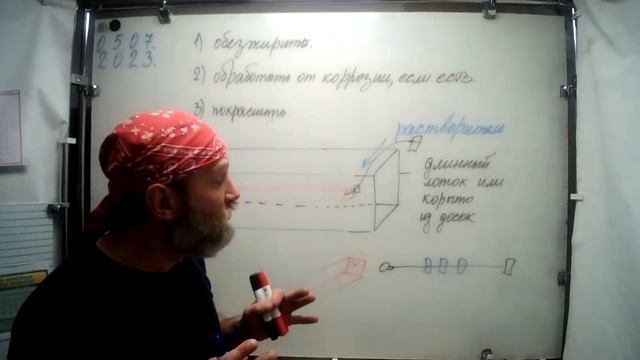 05.07.
2023.
1) обезжирить.
2) обработать от коррозии, если есть.
3) покрасить.
растворитель
длинный
лоток или
корыто
из досок